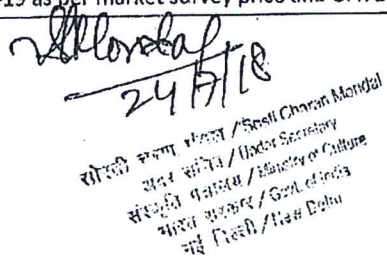 19 as per market survey price and
24/7/18
/ Sosti Charan Mondal
अवर सचिव / Under Secretary
संस्कृति मंत्रालय / Ministry of Culture
भारत सरकार / Govt. of India
नई दिल्ली / New Delhi